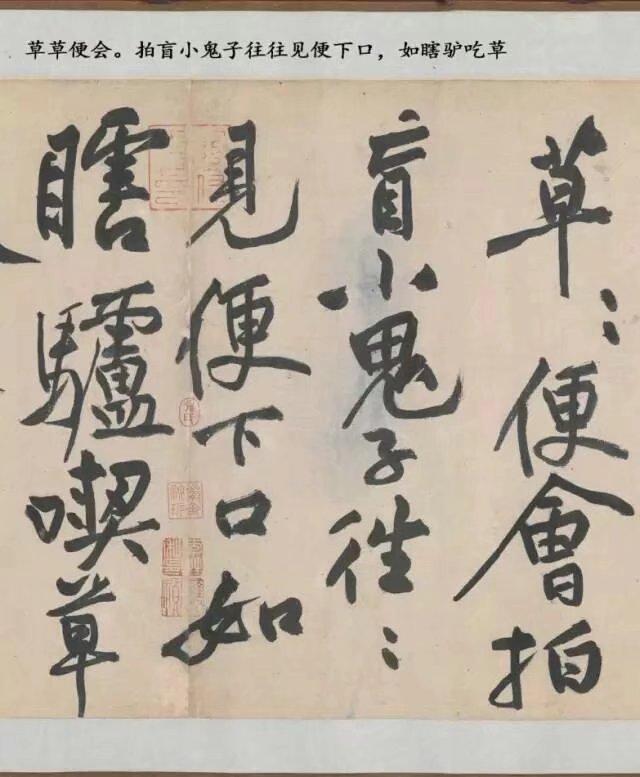 草草便会。拍盲小鬼子往往见便下口，如瞎驴吃草
草：便會拍
盲小鬼子往：
見便下口如
瞎驢喫草